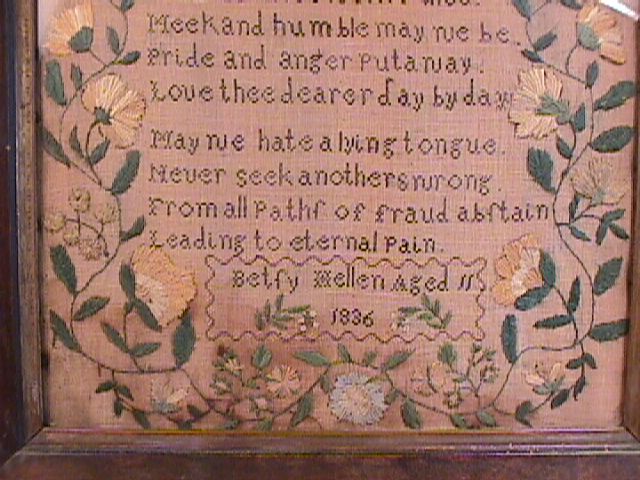 Meek and humble may we be.
Pride and anger put away.
Love thee dearer day by day
May we hate a lying tongue.
Never seek anothers wrong.
From all Pathſ of fraud abſtain
Leading to eternal Pain.
Betſy Mellen Aged 11
1836